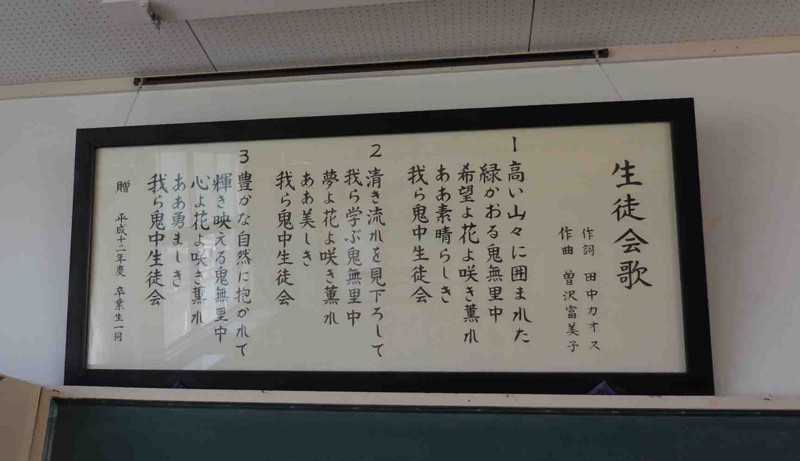 生徒会歌
作詞 田中カオス
作曲 曽沢富美子
1 高い山々に囲まれた
緑かおる鬼無里中
希望よ花よ咲き薫れ
ああ素晴らしき
我ら鬼中生徒会
2 清き流れを見下ろして
我ら学ぶ鬼無里中
夢よ花よ咲き薫れ
ああ美しき
我ら鬼中生徒会
3 豊かな自然に抱かれて
輝き映える鬼無里中
心よ花よ咲き薫れ
ああ勇ましき
我ら鬼中生徒会
贈 平成十二年度 卒業生一同